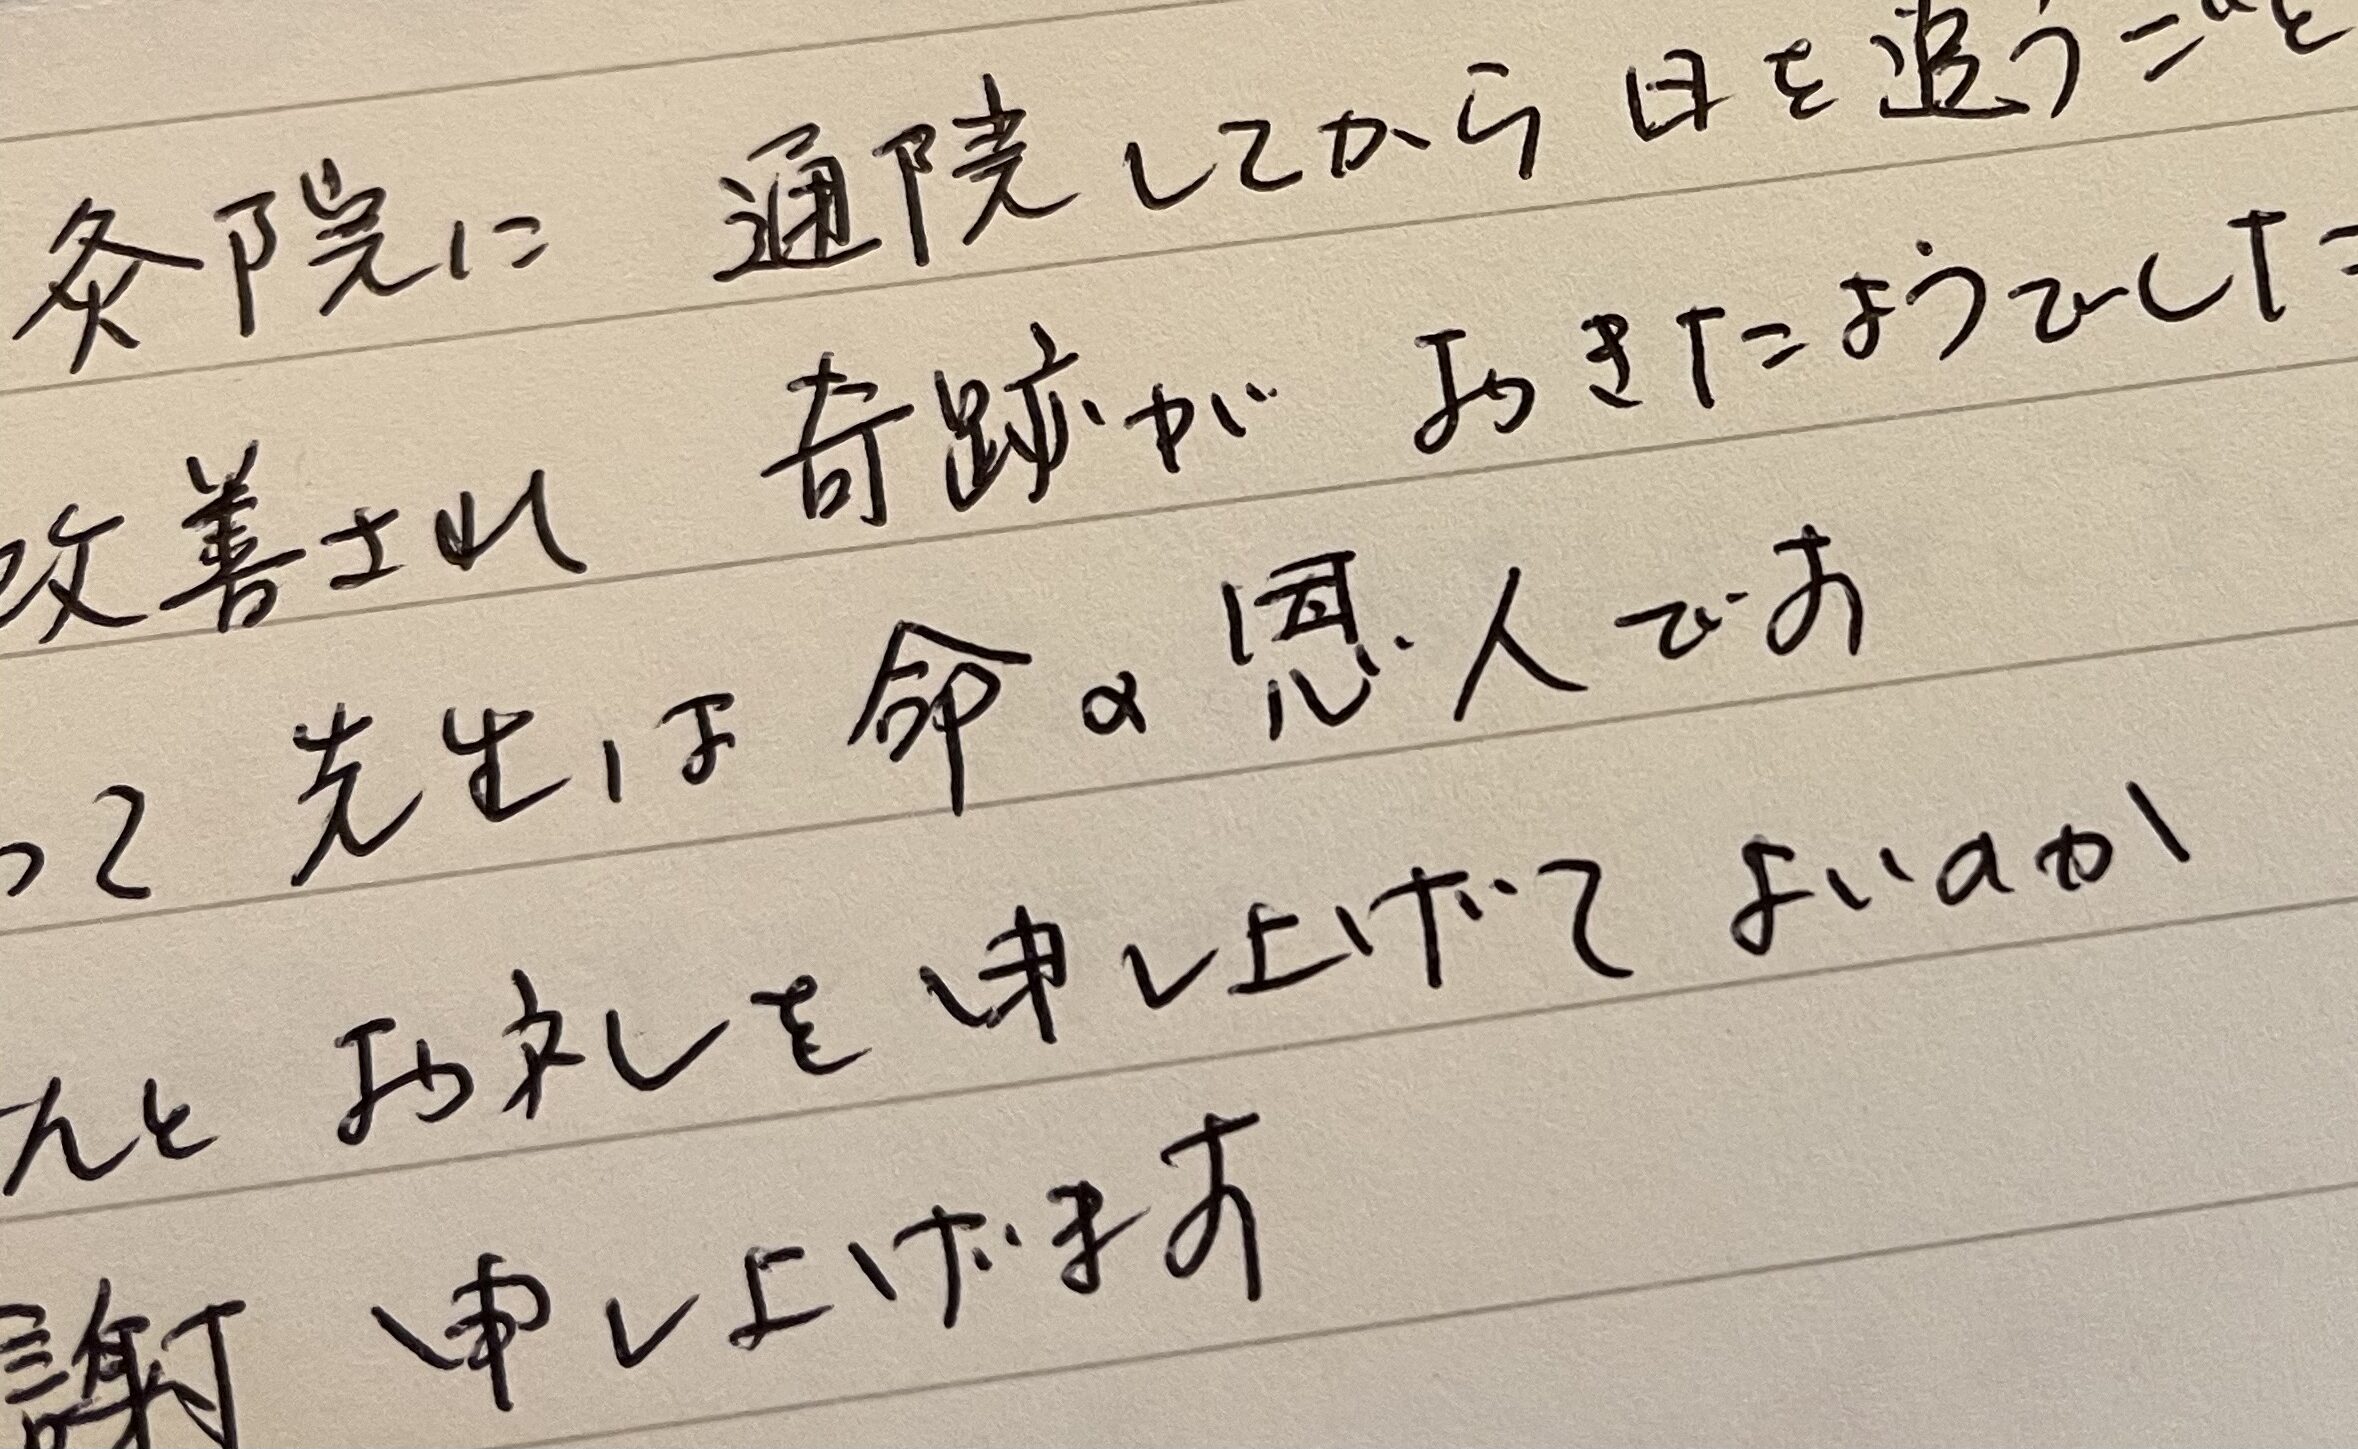 灸院に 通院してから日を追うごと
改善され 奇跡が おきたようでした
って 先生は 命の恩人です
んと お礼を申し上げて よいのか
謝 申し上げます